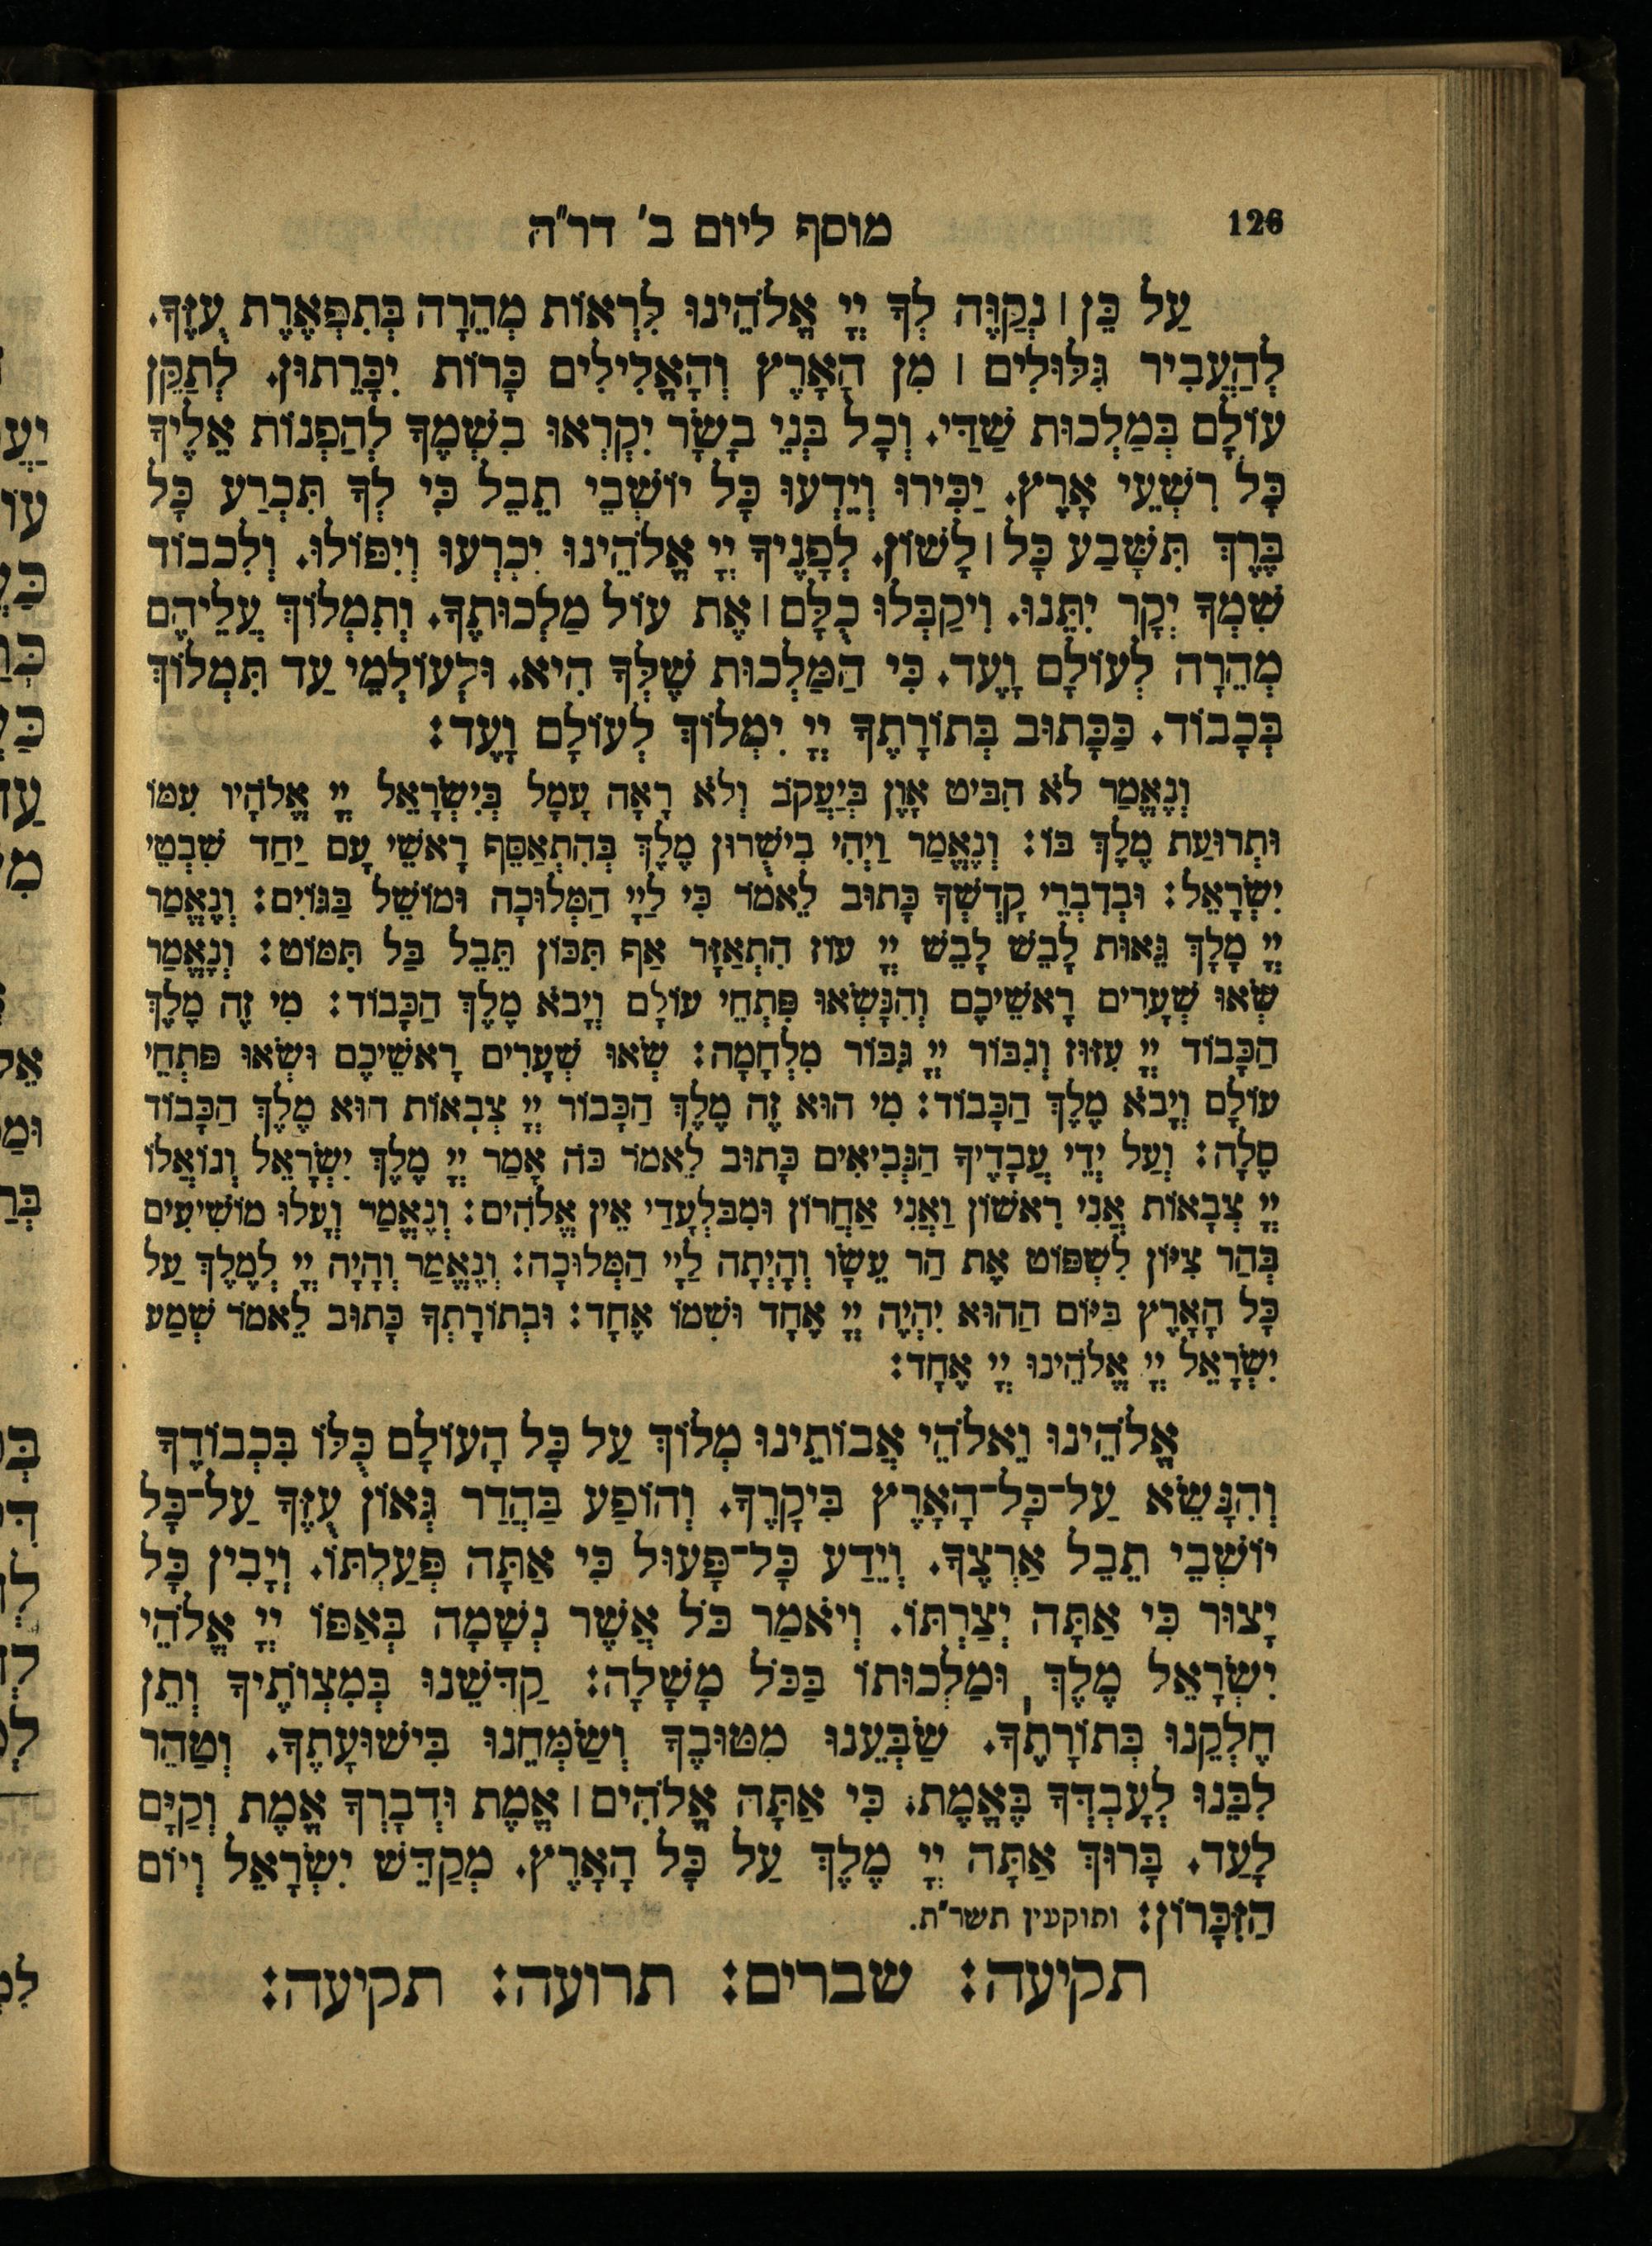 126
מוסף ליום ב' דר"ה
עַל כֵּן | נְקַוֶּה לְךָ יְיָ אֱלֹהֵינוּ לִרְאוֹת מְהֵרָה בְּתִפְאֶרֶת עֻזֶּךָ.
לְהַעֲבִיר גִּלּוּלִים | מִן הָאָרֶץ וְהָאֱלִילִים כָּרוֹת יִכָּרֵתוּן. לְתַקֵּן
עוֹלָם בְּמַלְכוּת שַׁדַּי. וְכָל בְּנֵי בָשָׂר יִקְרְאוּ בִשְׁמֶךָ לְהַפְנוֹת אֵלֶיךָ
כָּל רִשְׁעֵי אָרֶץ. יַכִּירוּ וְיֵדְעוּ כָּל יוֹשְׁבֵי תֵבֵל כִּי לְךָ תִּכְרַע כָּל
בֶּרֶךְ תִּשָּׁבַע כָּל | לָשׁוֹן. לְפָנֶיךָ יְיָ אֱלֹהֵינוּ יִכְרְעוּ וְיִפּוֹלוּ. וְלִכבוֹד
שִׁמְךָ יְקָר יִתֵּנוּ. וִיקַבְּלוּ כֻלָּם | אֶת עוֹל מַלְכוּתֶךָ. וְתִמְלוֹךְ עֲלֵיהֶם
מְהֵרָה לְעוֹלָם וָעֶד. כִּי הַמַּלְכוּת שֶׁלְּךָ הִיא. וּלְעוֹלְמֵי עַד תִּמְלוֹךְ
בְּכָבוֹד. כַּכָּתוּב בְּתוֹרָתֶךָ יְיָ יִמְלוֹךְ לְעוֹלָם וָעֶד:
וְנֶאֱמַר לֹא הִבִּיט אָוֶן בְּיַעֲקֹב וְלֹא רָאָה עָמָל בְּיִשְׂרָאֵל יְיָ אֱלֹהָיו עִמּוֹ
וּתְרוּעַת מֶלֶךְ בּוֹ: וְנֶאֱמַר וַיְהִי בִישֻׁרוּן מֶלֶךְ בְּהִתְאַסֵּף רָאשֵׁי עָם יַחַד שִׁבְטֵי
יִשְׂרָאֵל: וּבְדִבְרֵי קָדְשְׁךָ כָּתוּב לֵאמֹר כִּי לַיְיָ הַמְּלוּכָה וּמוֹשֵׁל בַּגּוֹיִם: וְנֶאֱמַר
יְיָ מָלָךְ גֵּאוּת לָבֵשׁ לָבֵשׁ יְיָ עוֹז הִתְאַזָּר אַף תִּכּוֹן תֵּבֵל בַּל תִּמּוֹט: וְנֶאֱמַר
שְׂאוּ שְׁעָרִים רָאשֵׁיכֶם וְהִנָּשְׂאוּ פִּתְחֵי עוֹלָם וְיָבֹא מֶלֶךְ הַכָּבוֹד: מִי זֶה מֶלֶךְ
הַכָּבוֹד יְיָ עִזּוּז וְגִבּוֹר יְיָ גִּבּוֹר מִלְחָמָה: שְׂאוּ שְׁעָרִים רָאשֵׁיכֶם וּשְׂאוּ פִּתְחֵי
עוֹלָם וְיָבֹא מֶלֶךְ הַכָּבוֹד: מִי הוּא זֶה מֶלֶךְ הַכָּבוֹר יְיָ צְבָאוֹת הוּא מֶלֶךְ הַכָּבוֹד
סֶלָה: וְעַל יְדֵי עֲבָדֶיךָ הַנְּבִיאִים כָּתוּב לֵאמֹר כֹּה אָמַר יְיָ מֶלֶךְ יִשְׂרָאֵל וְגוֹאֲלוֹ
יְיָ צְבָאוֹת אֲנִי רִאשׁוֹן וַאֲנִי אַחֲרוֹן וּמִבּלְעָדַי אֵין אֱלֹהִים: וְנֶאֱמַר וְעָלוּ מוֹשִׁיעִים
בְּהַר צִיּוֹן לִשְׁפּוֹט אֶת הַר עֵשָׂו וְהָיְתָה לַיְיָ הַמְּלוּכָה: וְנֶאֱמַר וְהָיָה יְיָ לְמֶלֶךְ עַל
כָּל הָאָרֶץ בַּיּוֹם הַהוּא יִהְיֶה יְיָ אֶחָד וּשְׁמוֹ אֶחָד: וּבְתוֹרָתְךָ כָּתוּב לֵאמֹר שְׁמַע
יִשְׂרָאֵל יְיָ אֱלֹהֵינוּ יְיָ אֶחָד:
אֱלֹהֵינוּ וֵאלֹהֵי אֲבוֹתֵינוּ מְלוֹךְ עַל כָּל הָעוֹלָם כֻּלּוֹ בִּכְבוֹדֶךָ
וְהִנָּשֵׂא עַל־כָּל־הָאָרֶץ בִּיקָרֶךָ. וְהוֹפַע בַּהֲדַר גְּאוֹן עֻזֶּךָ עַל־כָּל
יוֹשְׁבֵי תֵבֵל אַרְצֶךָ. וְיֵדַע כָּל־פָּעוּל כִּי אַתָּה פְּעַלְתּוֹ. וְיָבִין כָּל
יָצוּר כִּי אַתָּה יְצַרְתּוֹ. וְיֹאמַר כֹּל אֲשֶׁר נְשָׁמָה בְּאַפּוֹ יְיָ אֱלֹהֵי
יִשְׂרָאֵל מֶלֶךְ וּמַלְכוּתוֹ בַּכֹּל מָשָׁלָה: קַדְּשֵׁנוּ בְּמִצְוֹתֶיךָ וְתֵן
חֶלְקֵנוּ בְּתוֹרָתֶךָ. שַׂבְּעֵנוּ מִטּוּבֶךָ וְשַׂמְּחֵנוּ בִּישׁוּעָתֶךָ. וְטַהֵר
לִבֵּנוּ לְעָבְדְּךָ בֶּאֱמֶת. כִּי אַתָּה אֱלֹהִים | אֱמֶת וּדְבָרְךָ אֱמֶת וְקַיָּם
לָעַד. בָּרוּךְ אַתָּה יְיָ מֶלֶךְ עַל כָּל הָאָרֶץ. מְקַדֵּשׁ יִשְׂרָאֵל וְיוֹם
הַזִּכָּרוֹן: ותוקעין תשר"ת.
תקיעה: שברים: תרועה: תקיעה: